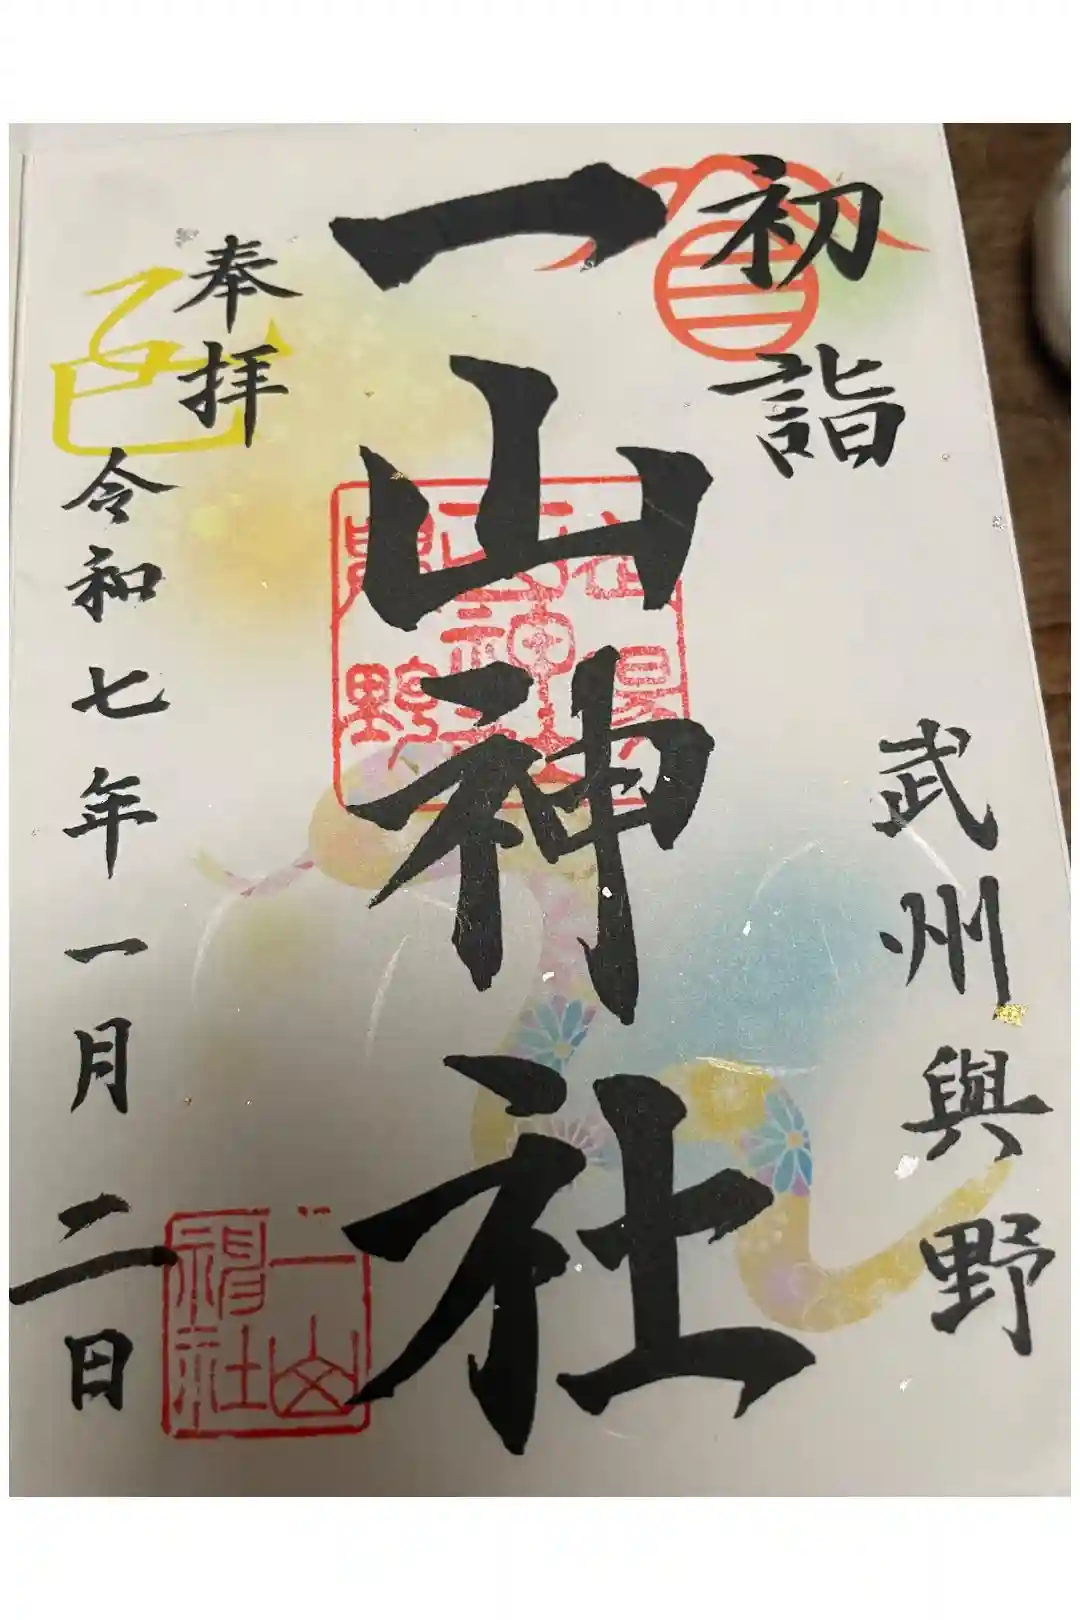 初詣
武州與野
一山神社
奉拝
乙巳
令和七年一月二日
一山神社